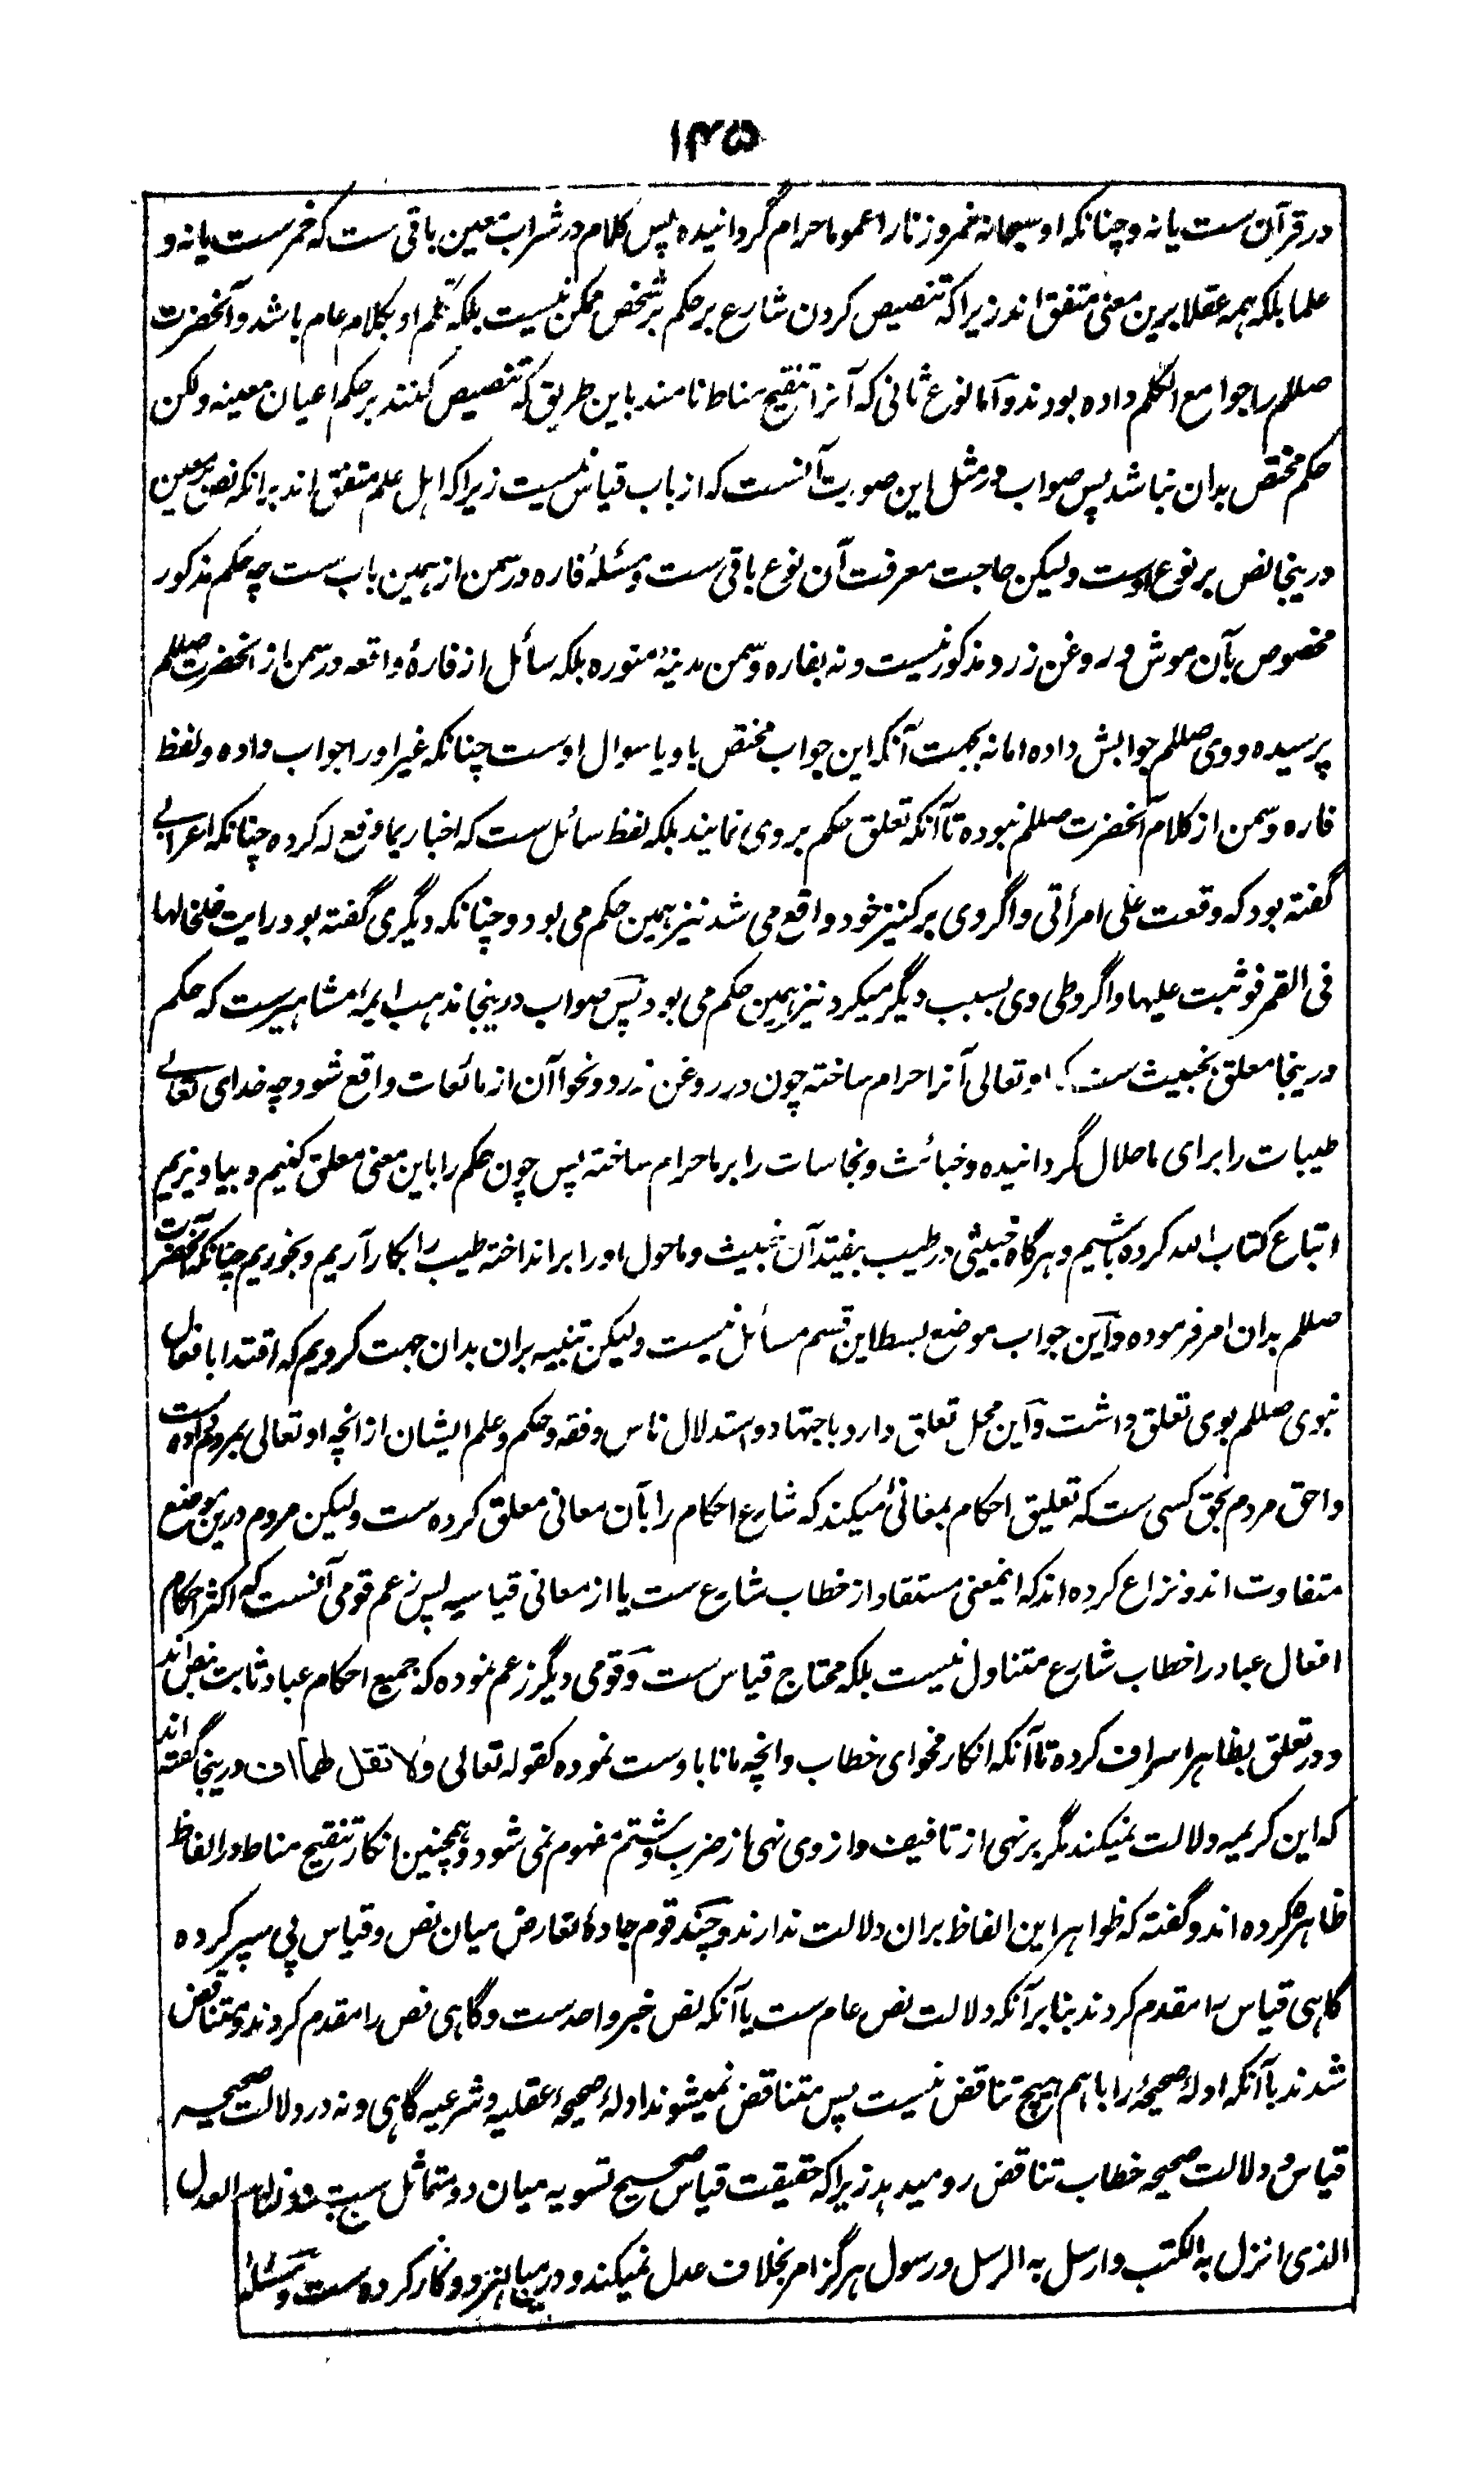 ۱۴۵
در قرآن ست یا نه و چنانکه او سبحانه خمر و زنا را عموما حرام گردانیده پس کلام در شراب معین باقی ست که خمر ست یا نه و
علما بلکه همه عقلا برین معنی متفق اند زیرا که تنصیص کردن شارع بر حکم هر شخص ممکن نیست بلکه تکلم او بکلام عام باشد و آنحضرت
صللم را جوامع الکلم داده بودند و اما نوع ثانی که آنرا تنقیح مناط نامند باین طریق که تنصیص کنند بر حکم اعیان معینه ولکن
حکم مختص بدان نباشد پس صواب در مثل این صورت آنست که از باب قیاس نیست زیرا که اهل علم متفق اند برانکه نص معین
درینجا نص بر نوع اوست ولیکن حاجت معرفت آن نوع باقی ست و مسئلهٔ فاره در سمن از همین باب ست چه حکم مذکور
مخصوص بآن موش و روغن زرد مذکور نیست و نه بفاره و سمن مدینهٔ منوره بلکه سائل از فارهٔ واقعه در سمن از آنحضرت صللم
پرسیده و وی صللم جوابش داده اما نه بجهت آنکه این جواب مختص باو یا سوال اوست چنانکه غیر او را جواب داده و لفظ
فاره و سمن از کلام آنحضرت صللم نبوده تا آنکه تعلق حکم بر وی نمایند بلکه لفظ سائل ست که اخبار بما وقع له کرده چنانکه اعرابی
گفته بود که وقعت علی امرأتی و اگر وی بر کنیز خود واقع می شد نیز همین حکم می بود و چنانکه دیگری گفته بود رایت خلخالها
فی القمر فوثبت علیها و اگر وطی وی بسبب دیگر میکرد نیز همین حکم می بود پس صواب درینجا مذهب ایمهٔ مشاهیرست که حکم
درینجا معلق بخبیث ست که او تعالی آنرا حرام ساخته چون در روغن زرد و نحو آن از مائعات واقع شود چه خدای تعالی
طیبات را برای ما حلال گردانیده و خبائث و نجاسات را بر ما حرام ساخته پس چون حکم را باین معنی معلق کنیم و بیاویزیم
اتباع کتاب الله کرده باشیم و هرگاه خبیثی در طیب بفتد آن خبیث و ماحول او را برانداخته طیب را بکار آریم و بخوریم چنانکه آنحضرت
صللم بدان امر فرموده و این جواب موضع بسط این قسم مسائل نیست ولیکن تنبیه بران بدان جهت کردیم که اقتدا بافعال
نبوی صللم بوی تعلق داشت و این محل تعلق دارد باجتهاد و استدلال ناس و فقه و حکم و علم ایشان از انچه او تعالی بمردم داده ست
و احق مردم بحق کسی ست که تعلیق احکام بمعانی میکند که شارع احکام را بآن معانی معلق کرده ست ولیکن مردم درین موضع
متفاوت اند و نزاع کرده اند که اینمعنی مستفاد از خطاب شارع ست یا از معانی قیاسیه پس زعم قومی آنست که اکثر احکام
افعال عباد را خطاب شارع متناول نیست بلکه محتاج قیاس ست و قومی دیگر زعم نموده که جمیع احکام عباد ثابت بنص اند
و در تعلق بظاهر اسراف کرده تا آنکه انکار فحوای خطاب و انچه مانا باوست نموده کقوله تعالی ولا تقل لهما اف درینجا گفته اند
که این کریمه دلالت نمیکند مگر بر نهی از تافیف و از وی نهی از ضرب و شتم مفهوم نمی شود و همچنین انکار تنقیح مناط در الفاظ
ظاهره کرده اند و گفته که ظواهر این الفاظ بران دلالت ندارند و چند قوم جادهٔ تعارض میان نص و قیاس پی سپر کرده
گاهی قیاس را مقدم کردند بنابر آنکه دلالت نص عام ست یا آنکه نص خبر واحدست و گاهی نص را مقدم کردند و متناقض
شدند با آنکه ادلهٔ صحیحهٔ را باهم هیچ تناقض نیست پس متناقض نمیشوند ادلهٔ صحیحهٔ عقلیه و شرعیه گاهی و نه در دلالت صحیحه
قیاس و دلالت صحیحه خطاب تناقض رو میدهد زیرا که حقیقت قیاس صحیح تسویه میان دو متماثل ست العدل
الذی انزل به الکتب و ارسل به الرسل و رسول هرگز امر بخلاف عدل نمیکند و در کرده ست و مسئلهٔ